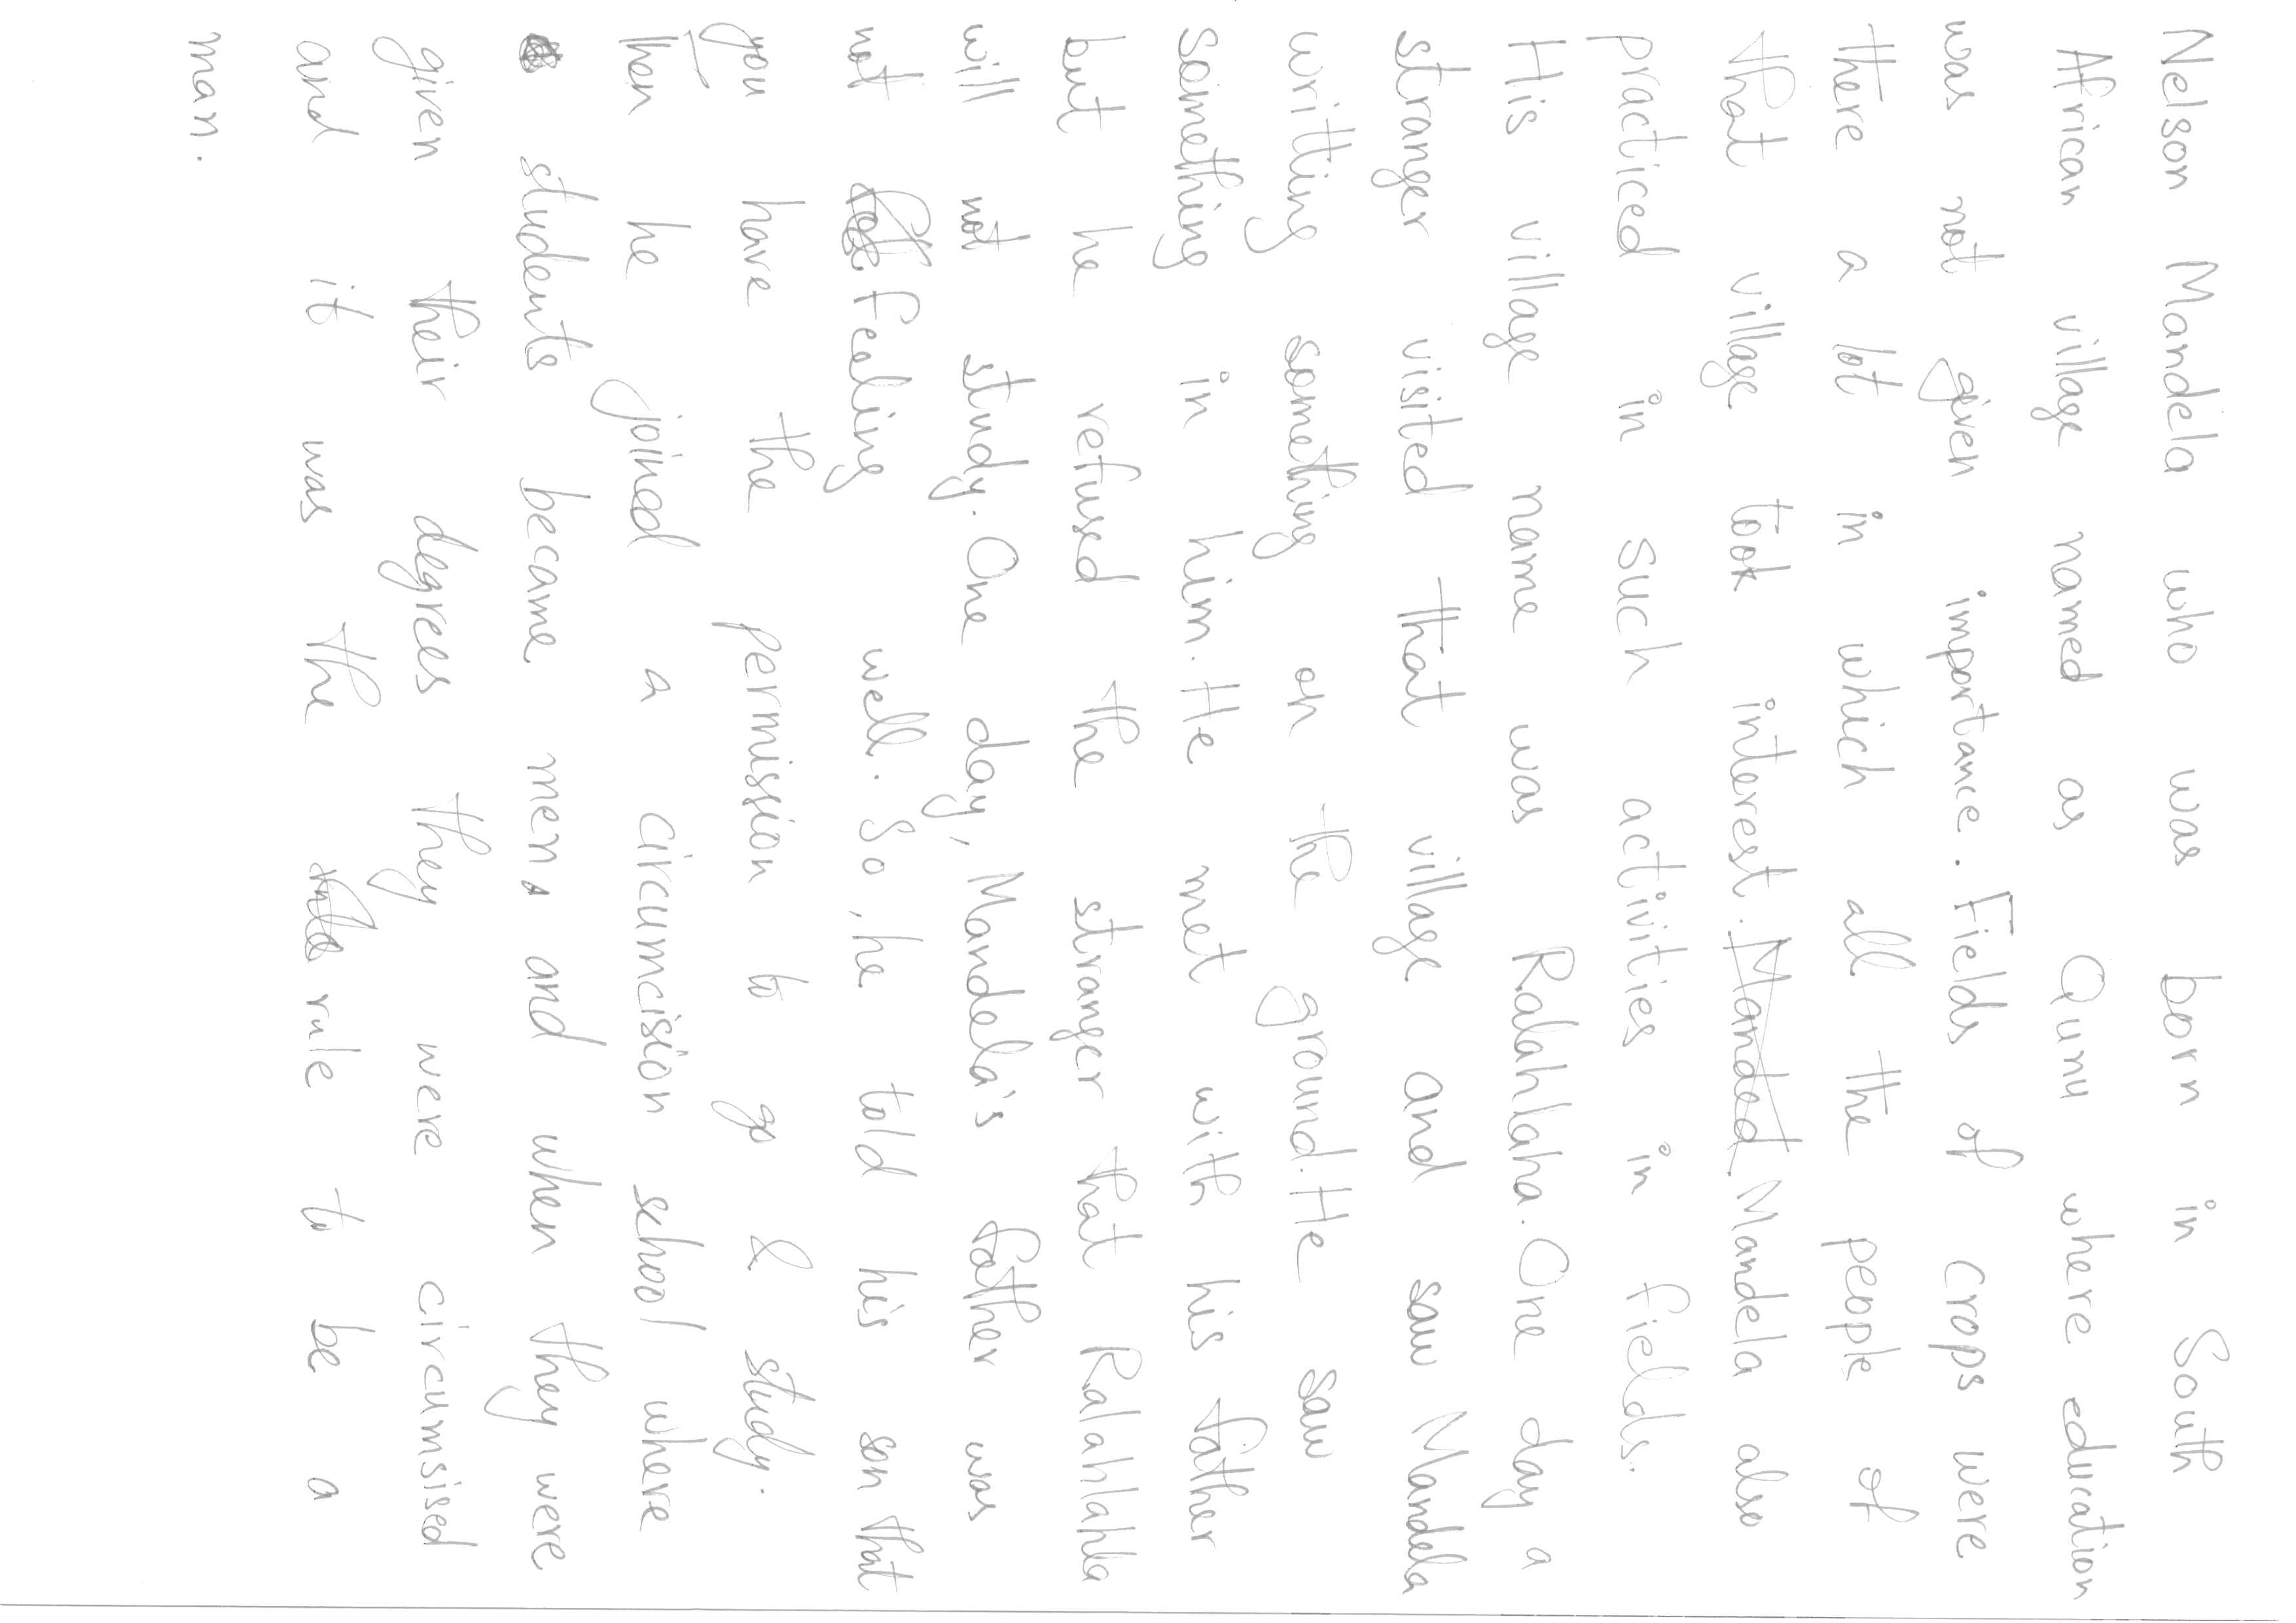 Nelson Mandela who was born in South
African village named as Qunu where education
was not given importance. Fields of crops were
there a lot in which all the people of
that village took interest. Manded Mandela also
practiced in such activities in fields.
His village name was Ralahlaha. One day a
stranger visited that village and saw Mandela
writting something on the ground. He saw
something in him. He met with his father
but he refused the stranger that Ralahlahla
will not study. One day, Mandela's father was
not feeling well. So, he told his son that
you have the permission to go & study.
Then he joined a circumcision school where
students became men. and when they were
given their degrees they were circumsised
and it was the rule to be a
man.